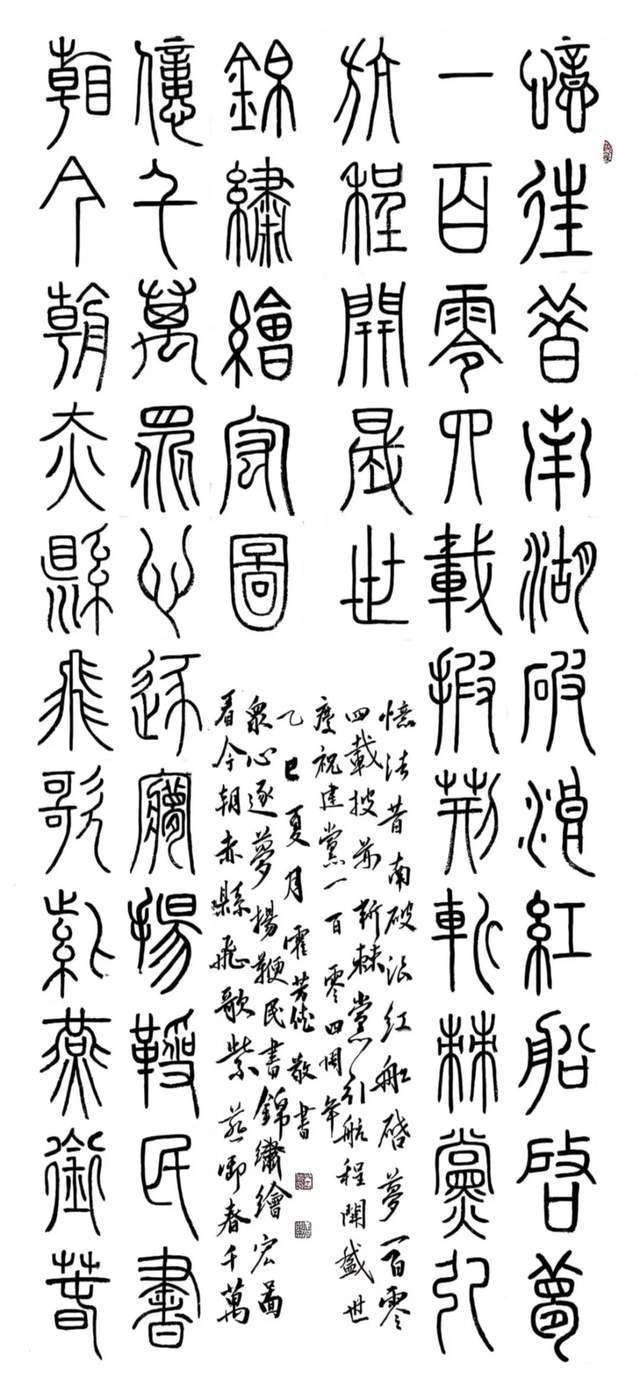 憶往昔南湖破浪紅船啓夢
一百零四載披荊斬棘黨引
航程開晟世
看今朝赤縣飛歌紫燕銜春
億千萬眾心逐夢揚鞭民書
錦繡繪宏圖
憶往昔南破浪紅船啓夢一百零
四載披荊斬棘黨引航程開盛世
慶祝建黨一百零四周年
乙巳夏月霍芳敬書
看今朝赤縣飛歌紫燕銜春千萬
眾心逐夢揚鞭民書錦繡繪宏圖